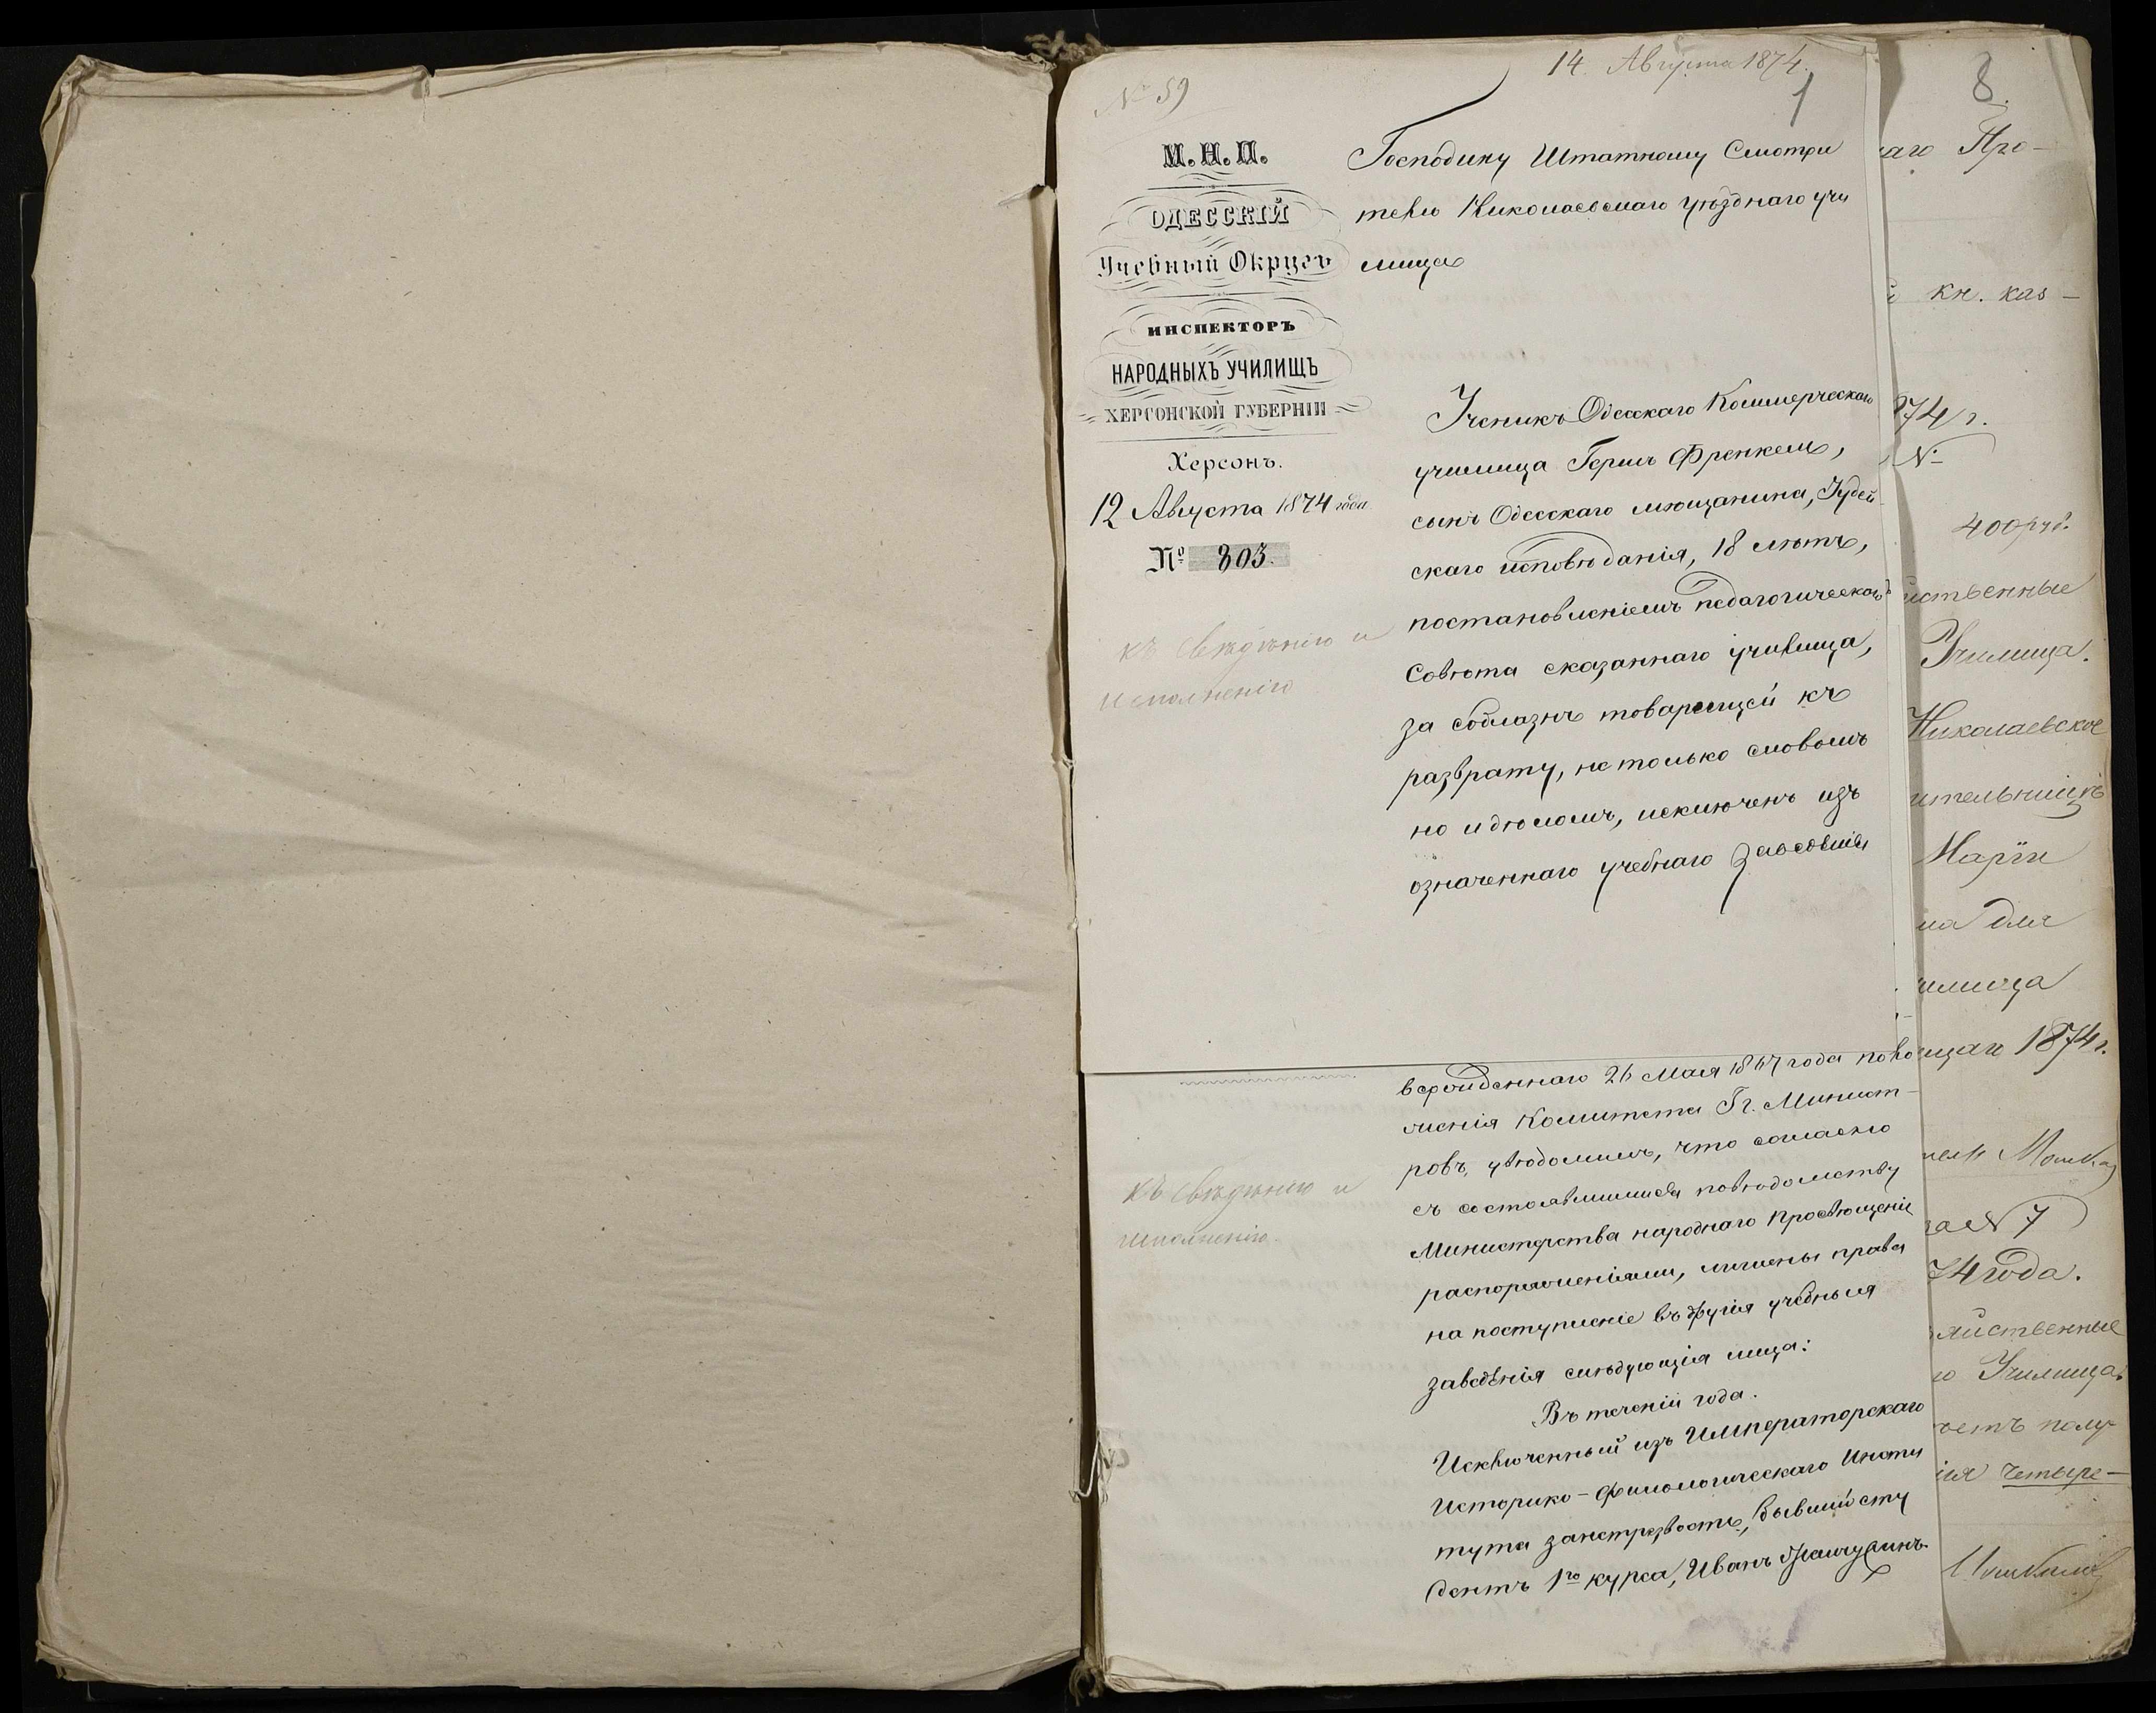 № 59
14. Августа 1874.
1
М. Н. П.
ОДЕССКІЙ
Учебный Округъ
ИНСПЕКТОРЪ
НАРОДНЫХЪ УЧИЛИЩЪ
ХЕРСОНСКОЙ ГУБЕРНІИ
Херсонъ.
12 Августа 1874 года
№ 803.
къ свѣдѣнію и
исполненію
Господину Штатному Смотри
телю Николаевскаго уѣзднаго учи
лища
Ученикъ Одесскаго Коммерческаго
училища Гершъ Френкель,
сынъ Одесскаго мѣщанина, Іудей
скаго исповѣданія, 18 лѣтъ,
постановленіемъ педагогическаго
Совѣта сказаннаго училища,
за соблазнъ товарищей къ
разврату, не только словомъ
но и дѣломъ, исключенъ изъ
означеннаго учебнаго заведенія
къ свѣдѣнію и
исполненію.
вержденнаго 26 Мая 1867 года поло
женія Комитета Гг. Минист-
ровъ, увѣдомилъ, что согласно
съ состоявшимися по вѣдомству
Министерства народнаго Просвѣщенія
распоряженіями, лишены права
на поступленіе въ другія учебныя
заведенія слѣдующія лица:
Въ теченіи года.
Исключенный изъ Императорскаго
Историко-филологическаго Инсти
тута за нетрезвость, бывшій сту
дентъ 1го курса, Иванъ
8.
аго Про-
кн. каз-
74 г.
№
400 руб.
йственные
Училища.
Николаевское
ительницѣ
Маріи
на для
илища
щаго 1874 г.
за № 7
74 года.
яйственные
о Училища.
четъ полу-
ія четыре-